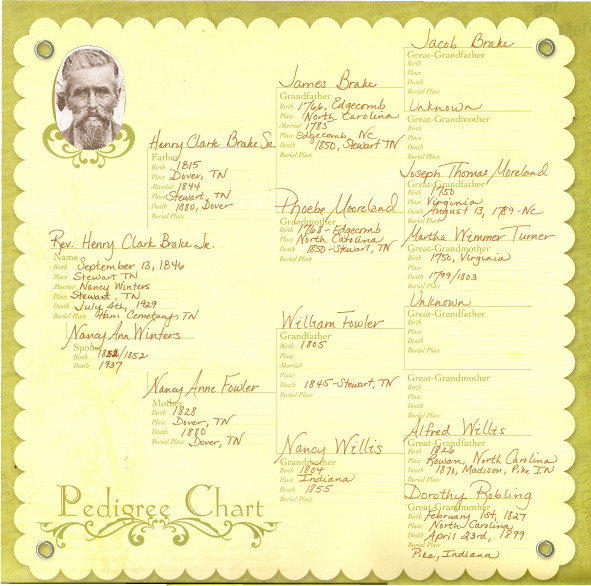 Rev. Henry Clark Brake Jr.
Name
Birth September 13, 1846
Place Stewart TN
Married Nancy Winters
Place Stewart, TN
Death July 4th, 1929
Burial Place Ham Cemetary, TN
Nancy Ann Winters
Spouse
Birth /1852
Death 1937
Henry Clark Brake Sr.
Father
Birth 1815
Place Dover, TN
Married 1844
Place Stewart, TN
Death 1880, Dover
Burial Place
Nancy Anne Fowler
Mother
Birth 1828
Place Dover, TN
Death 1880
Burial Place Dover, TN
James Brake
Grandfather
Birth 1766, Edgecomb
Place North Carolina
Married 1785
Place Edgecomb, NC
Death 1850, Stewart TN
Burial Place
Phoebe Mooreland
Grandmother
Birth 1768 - Edgecomb
Place North Carolina
Death 1850 - Stewart, TN
Burial Place
William Fowler
Grandfather
Birth 1805
Place
Married
Place
Death 1845 - Stewart, TN
Burial Place
Nancy Willis
Grandmother
Birth 1804
Place Indiana
Death 1855
Burial Place
Jacob Brake
Great-Grandfather
Birth
Place
Death
Burial Place
Unknown
Great-Grandmother
Birth
Place
Death
Burial Place
Joseph Thomas Moreland
Great-Grandfather
Birth 1750
Place Virginia
Death August 13, 1789 - NC
Burial Place
Martha Wimmer Turner
Great-Grandmother
Birth 1750, Virginia
Place
Death 1799/1803
Burial Place
Unknown
Great-Grandfather
Birth
Place
Death
Burial Place
Great-Grandmother
Birth
Place
Death
Burial Place
Alfred Willis
Great-Grandfather
Birth 1826
Place Rowan, North Carolina
Death 1870, Madison, Pike IN
Burial Place
Dorothy Robling
Great-Grandmother
Birth February 1st, 1827
Place North Carolina
Death April 23rd, 1899
Burial Place
Pike, Indiana
Pedigree Chart